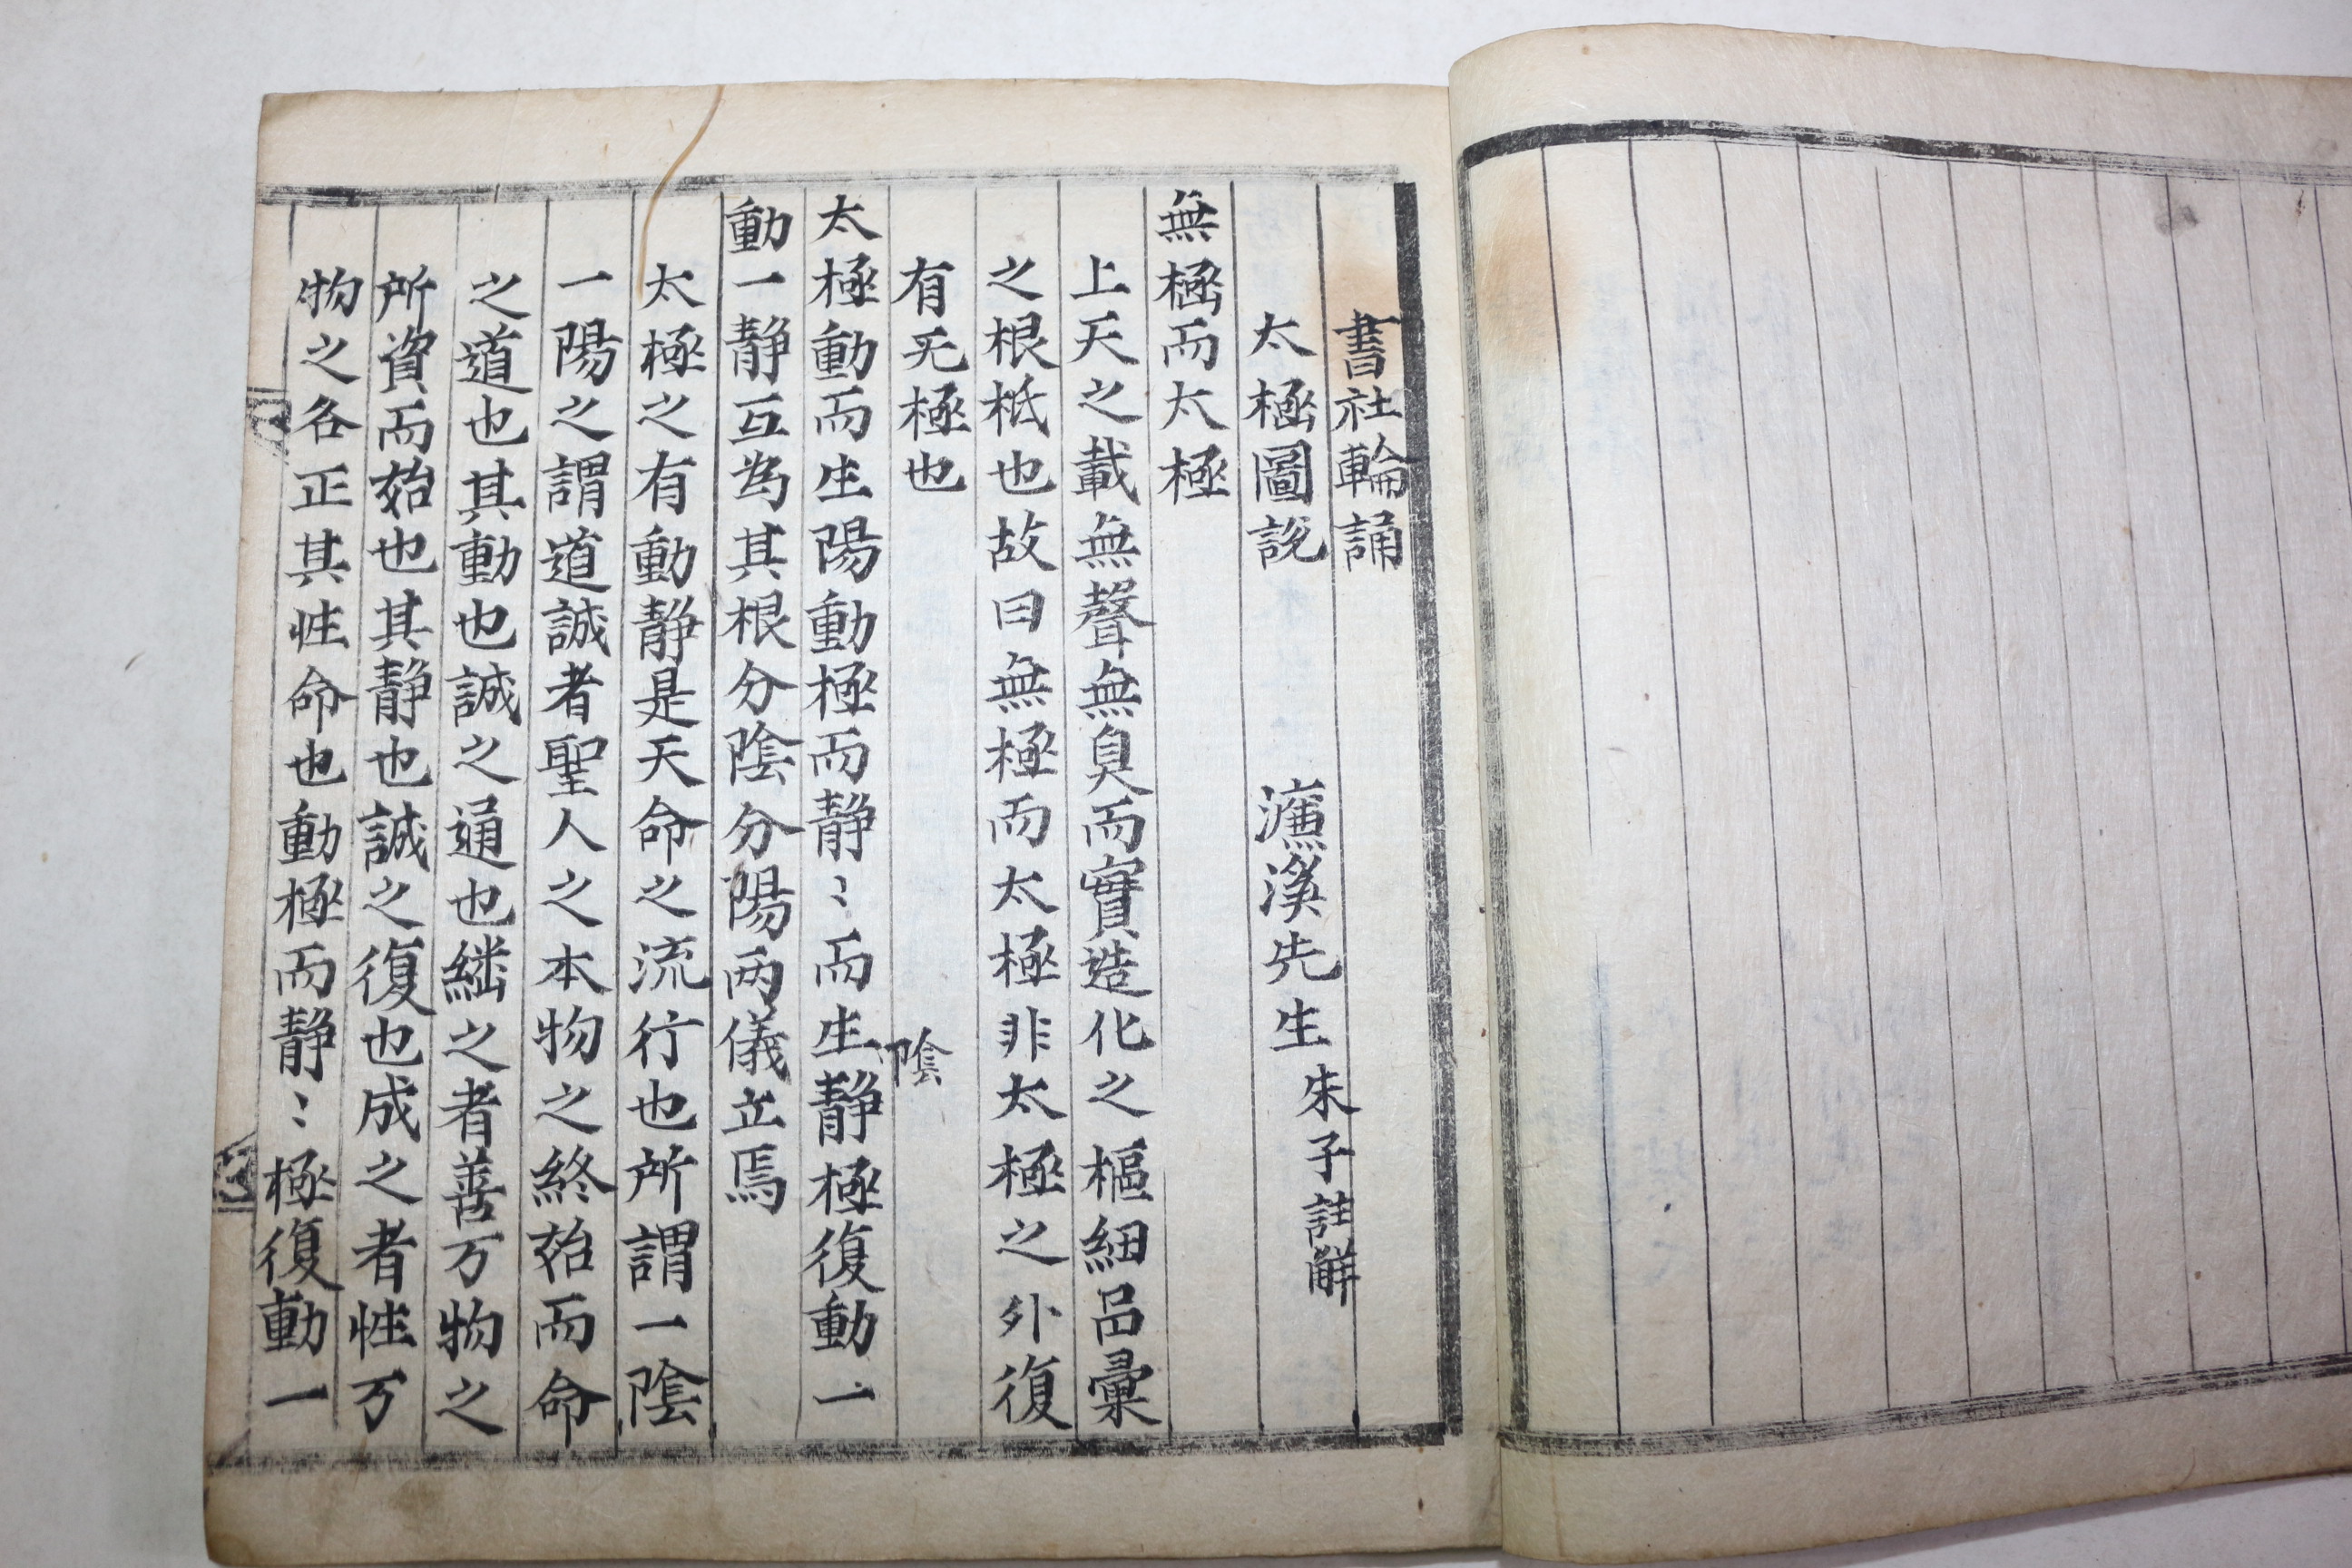 書社輪誦
太極圖說 濂溪先生朱子註解
無極而太極
上天之載無聲無臭而實造化之樞細品彙
之根柢也故曰無極而太極非太極之外復
有无極也
太極動而生陽動極而静〻而生陰静極復動一
動一静互為其根分陰分陽两儀立焉
太極之有動静是天命之流行也所謂一陰
一陽之謂道誠者聖人之本物之終始而命
之道也其動也誠之通也繼之者善万物之
所資而始也其静也誠之復也成之者性万
物之各正其性命也動極而静〻極復動一